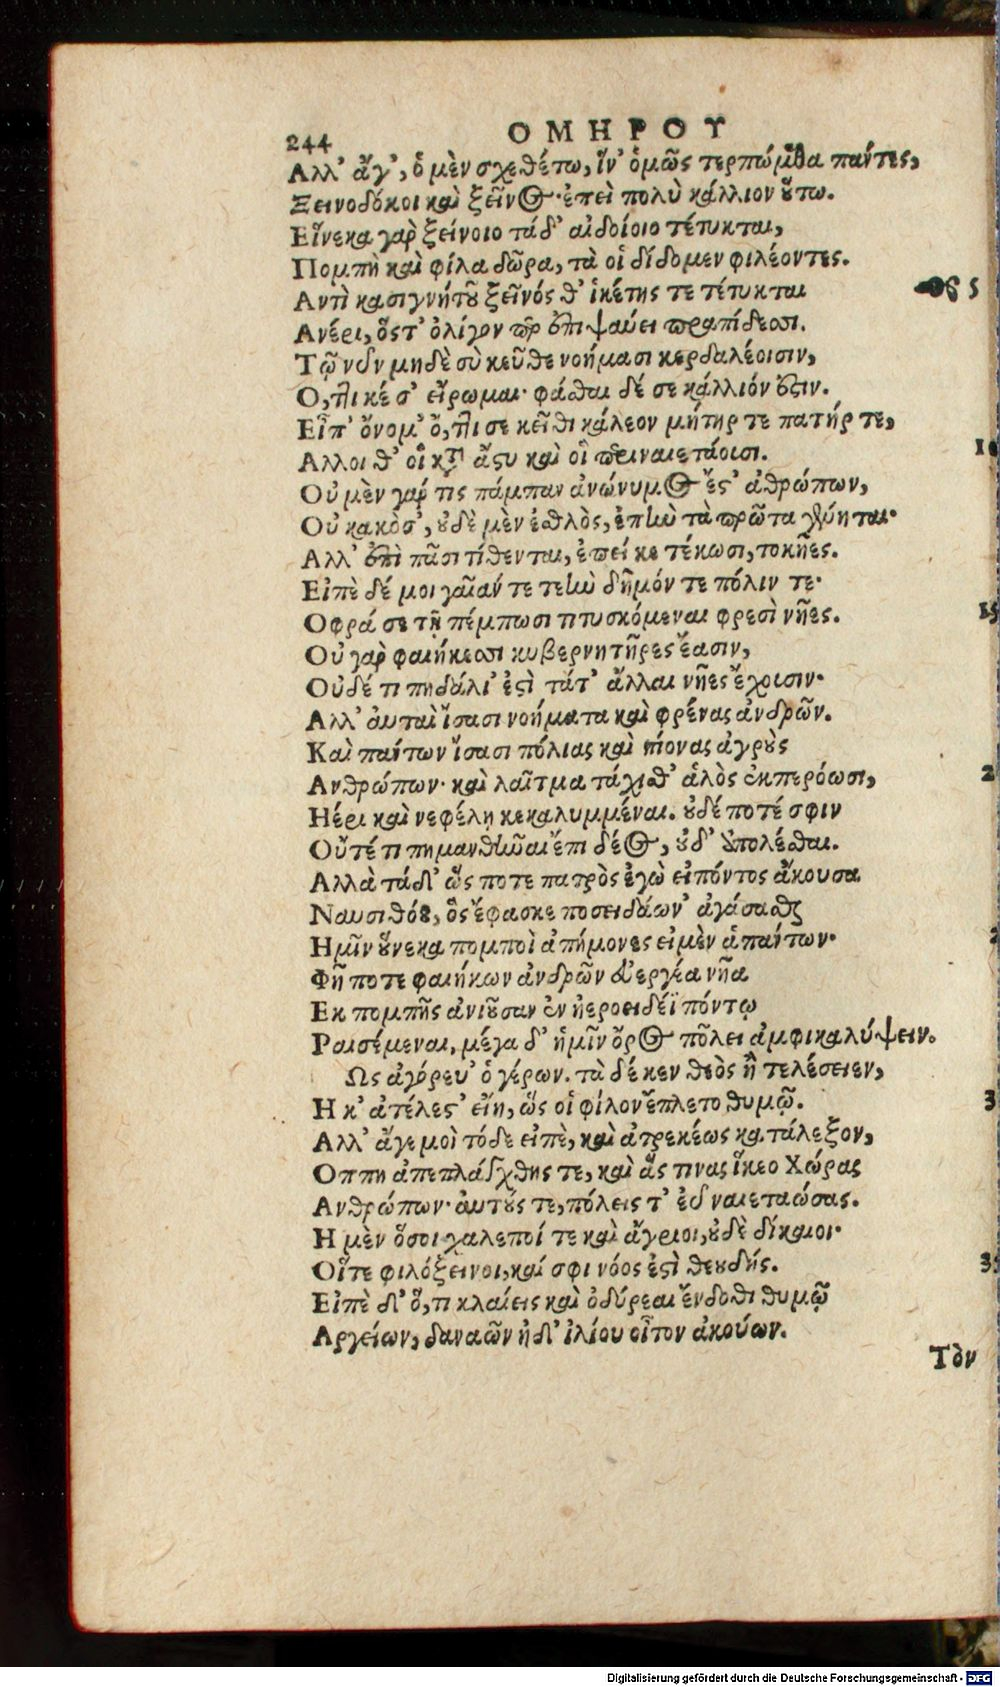 244 ΟΜΗΡΟΥ
Αλλ' ἄγ', ὁ μὲν σχεθέτω, ἵν' ὁμῶς τερπώμεθα πάντες,
Ξεινοδόκοι καὶ ξεῖνος· ἐπεὶ πολὺ κάλλιον οὕτω.
Εἵνεκα γὰρ ξείνοιο τάδ' αἰδοίοιο τέτυκται,
Πομπὴ καὶ φίλα δῶρα, τὰ οἱ δίδομεν φιλέοντες.
Αντὶ κασιγνήτου ξεῖνός θ' ἱκέτης τε τέτυκται
Ανέρι, ὅστ' ὀλίγον περ ἐπιψαύει πραπίδεσσι. 5
Τῷ νῦν μηδὲ σὺ κεῦθε νοήμασι κερδαλέοισιν,
Ο,τι κέ σ' εἴρωμαι· φάσθαι δέ σε κάλλιόν ἐστιν.
Εἴπ' ὄνομ' ὅ,τι σε κεῖθι κάλεον μήτηρ τε πατήρ τε,
Αλλοι θ' οἳ κατὰ ἄστυ καὶ οἳ περιναιετάουσι. 10
Οὐ μὲν γάρ τις πάμπαν ἀνώνυμος ἔστ' ἀνθρώπων,
Οὐ κακὸς, οὐδὲ μὲν ἐσθλὸς, ἐπὴν τὰ πρῶτα γένηται·
Αλλ' ἐπὶ πᾶσι τίθενται, ἐπεί κε τέκωσι, τοκῆες.
Εἰπὲ δέ μοι γαῖάν τε τεὴν δῆμόν τε πόλιν τε·
Οφρά σε τῇ πέμπωσι τιτυσκόμεναι φρεσὶ νῆες. 15
Οὐ γὰρ φαιήκεσσι κυβερνητῆρες ἔασιν,
Οὐδέ τι πηδάλι' ἐστὶ τάτ' ἄλλαι νῆες ἔχουσιν·
Αλλ' αὐταὶ ἴσασι νοήματα καὶ φρένας ἀνδρῶν.
Καὶ πάντων ἴσασι πόλιας καὶ πίονας ἀγροὺς
Ανθρώπων· καὶ λαῖτμα τάχισθ' ἁλὸς ἐκπερόωσι, 2
Ηέρι καὶ νεφέλῃ κεκαλυμμέναι. οὐδέ ποτέ σφιν
Οὔτέ τι πημανθῆναι ἔπι δέος, οὐδ' ἀπολέσθαι.
Αλλὰ τάδ' ὥς ποτε πατρὸς ἐγὼ εἰπόντος ἄκουσα
Ναυσιθόου, ὃς ἔφασκε ποσειδάων' ἀγάσασθαι
Ημῖν οὕνεκα πομποὶ ἀπήμονες εἰμὲν ἁπάντων· 2
Φῆ ποτε φαιήκων ἀνδρῶν εὐεργέα νῆα
Εκ πομπῆς ἀνιοῦσαν ἐν ἠεροειδέϊ πόντῳ
Ραισέμεναι, μέγα δ' ἡμῖν ὄρος πόλει ἀμφικαλύψειν.
Ως ἀγόρευ' ὁ γέρων. τὰ δέ κεν θεὸς ἢ τελέσειεν,
Η κ' ἀτέλεστ' εἴη, ὥς οἱ φίλον ἔπλετο θυμῷ. 3
Αλλ' ἄγε μοὶ τόδε εἰπὲ, καὶ ἀτρεκέως κατάλεξον,
Οππη ἀπεπλάγχθης τε, καὶ ἅς τινας ἵκεο Χώρας
Ανθρώπων· αὐτούς τε, πόλεις τ' εὖ ναιεταώσας.
Η μὲν ὅσοι χαλεποί τε καὶ ἄγριοι, οὐδὲ δίκαιοι·
Οἵτε φιλόξεινοι, καί σφι νόος ἐστὶ θεουδής. 35
Εἰπὲ δ' ὅ,τι κλαίεις καὶ ὀδύρεαι ἔνδοθι θυμῷ
Αργείων, δαναῶν ἠδ' ἰλίου οἶτον ἀκούων.
Τὸν
Digitalisierung gefördert durch die Deutsche Forschungsgemeinschaft - DFG